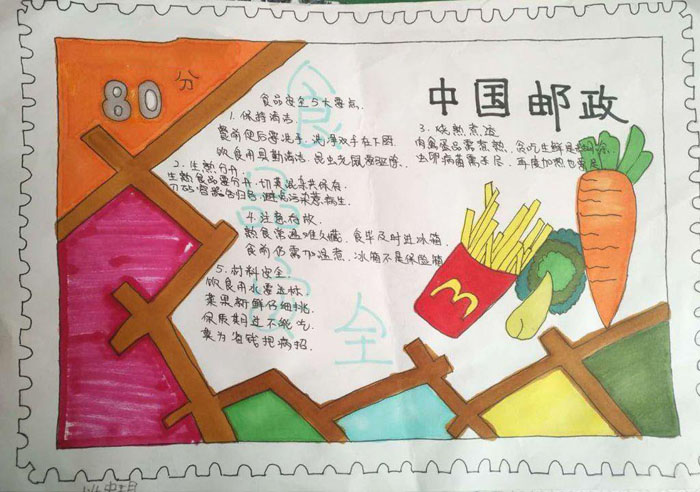 80分
中国邮政
食品安全5大要点
1. 保持清洁
餐前便后要洗手，洗净双手在下厨
饮食用具勤清洁，昆虫老鼠要驱除
2. 生熟分开
生熟食品要分开，切莫混杂共保存
刀砧容器各归各，避免污染惹病生
3. 烧熟煮透
肉禽蛋品需煮熟，贪吃生鲜是
虫卵病菌需杀尽，再度加热也要足
4. 注意存放
熟食常温难久藏，食毕及时进冰箱
食前仍需加温煮，冰箱不是保险箱
5. 材料安全
饮食用水要达标
菜果新鲜仔细挑
保质期过不能吃
莫为省钱把病招
食品安全